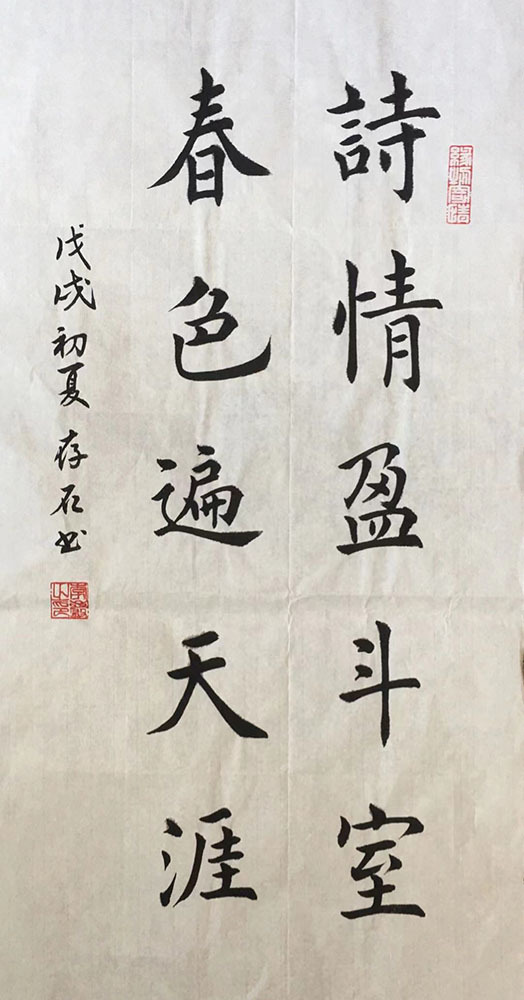 詩情盈斗室
春色遍天涯
戊戌初夏存石书